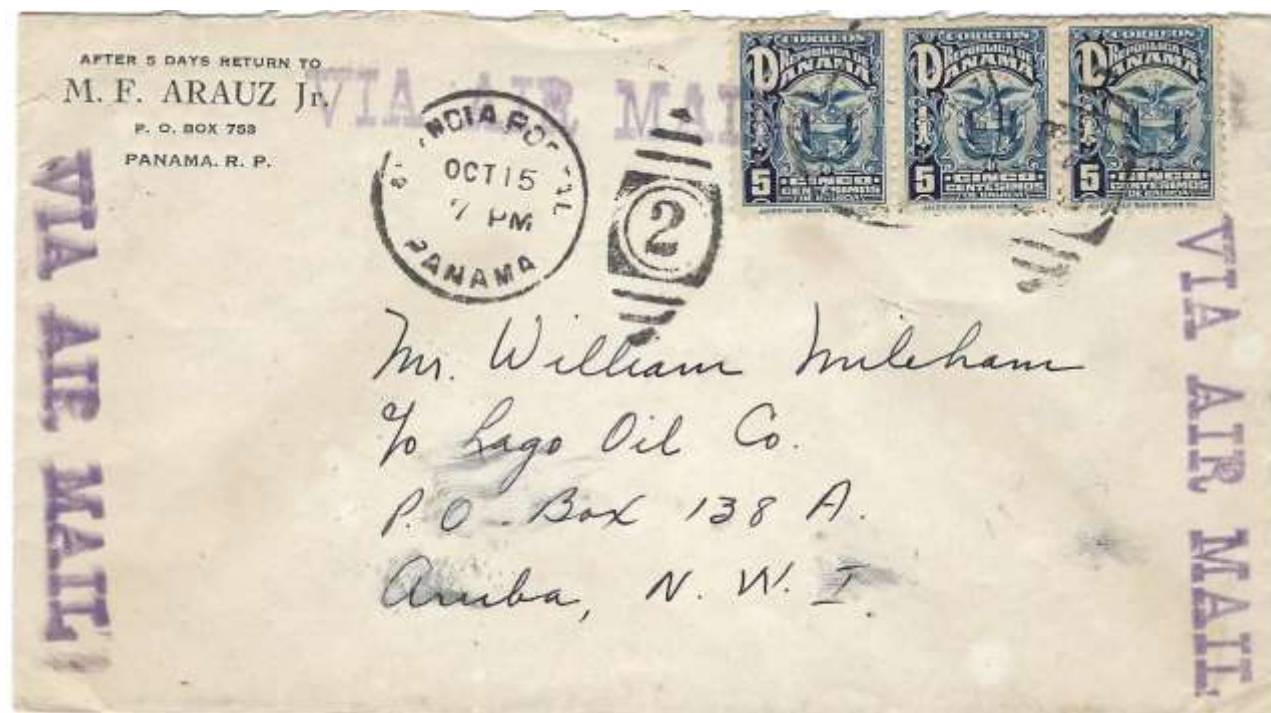 AFTER 5 DAYS RETURN TO
M. F. ARAUZ Jr.
P. O. BOX 753
PANAMA. R. P.
VIA AIR MAIL
OCT 15
7 PM
PANAMA
2
CORREOS
REPUBLICA DE
PANAMA
5 CINCO
CENTESIMOS
CORREOS
REPUBLICA DE
PANAMA
5 CINCO
CENTESIMOS
CORREOS
REPUBLICA DE
PANAMA
5 CINCO
CENTESIMOS
VIA AIR MAIL
VIA AIR MAIL
Mr. William Mileham
c/o Lago Oil Co.
P.O. Box 138 A.
Aruba, N. W. I.